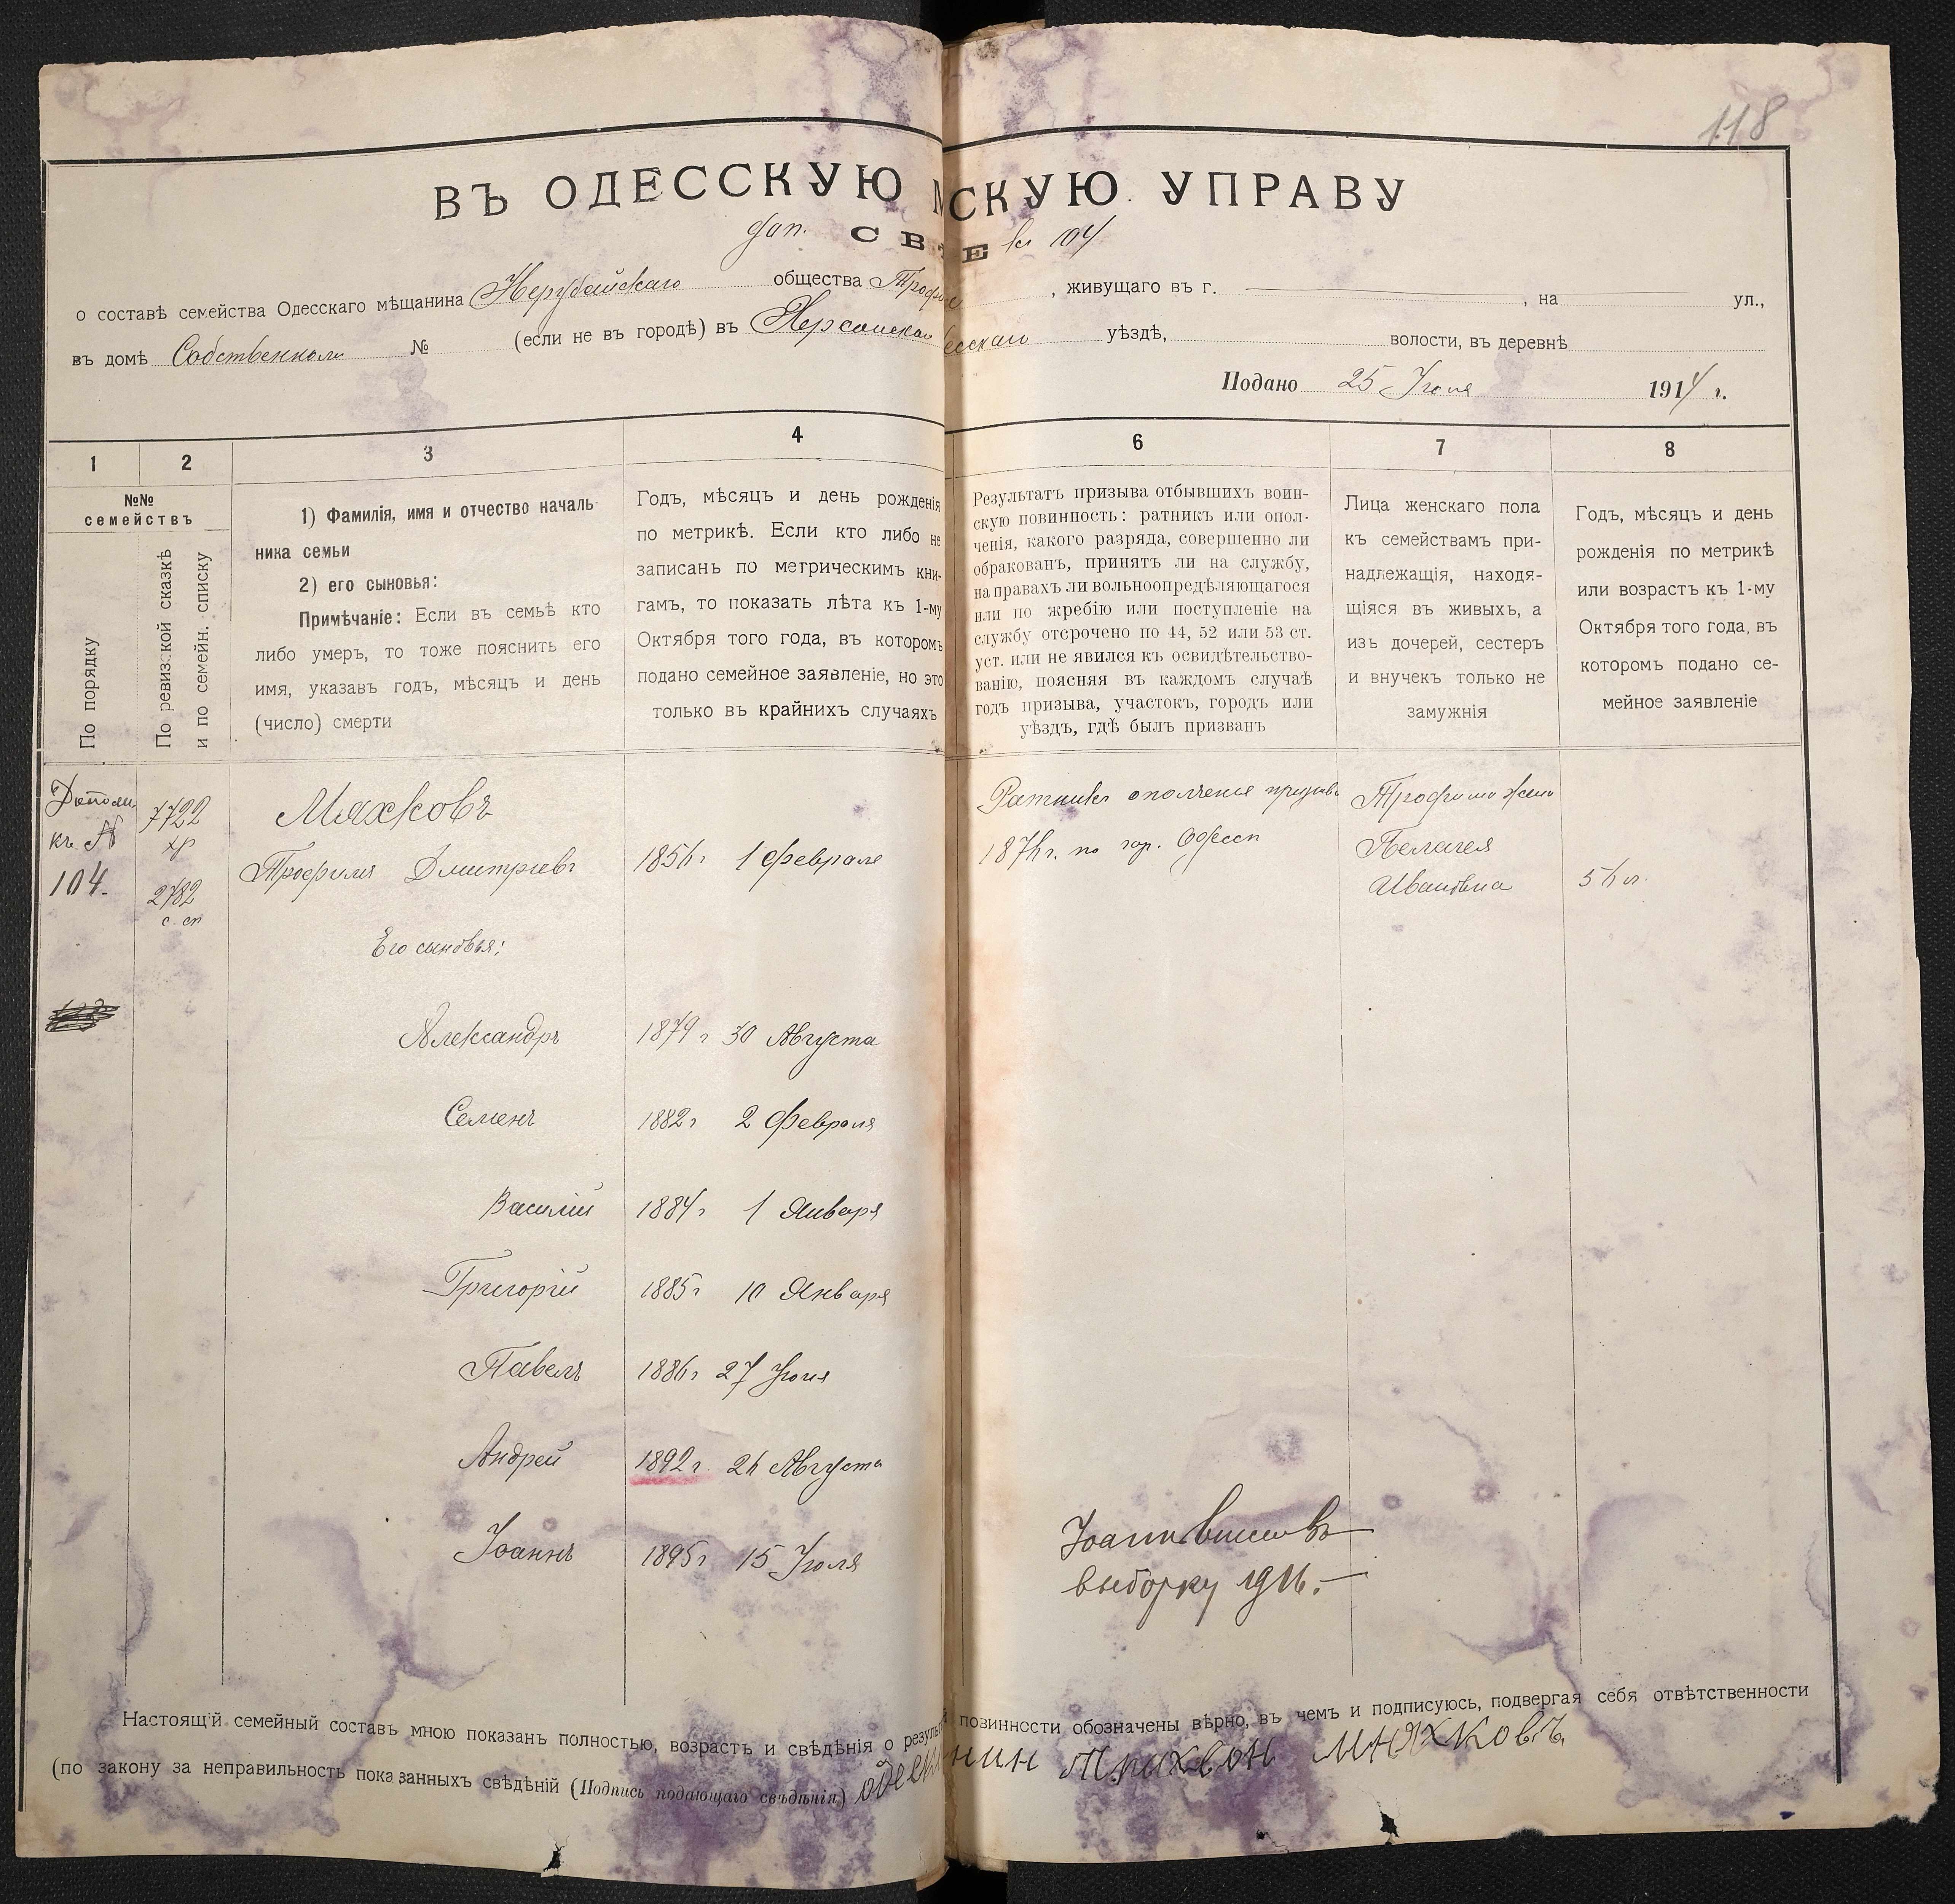 118
ВЪ ОДЕССКУЮ М СКУЮ УПРАВУ
доп. СВ Е № 104
о составѣ семейства Одесскаго мѣщанина Нерубайскаго общества Трофи , живущаго въ г. , на ул.,
въ домѣ Собственном № (если не въ городѣ) въ Херсонской есскаго уѣздѣ, волости, въ деревнѣ
Подано 25 Июня 1914 г.
1 2 3 4 6 7 8
№№ семействъ
По порядку
По ревизской сказкѣ
и по семейн. списку
1) Фамилія, имя и отчество началь-
ника семьи
2) его сыновья:
Примѣчаніе: Если въ семьѣ кто
либо умеръ, то тоже пояснить его
имя, указавъ годъ, мѣсяцъ и день
(число) смерти
Годъ, мѣсяцъ и день рожденія
по метрикѣ. Если кто либо не
записанъ по метрическимъ кни-
гамъ, то показать лѣта къ 1-му
Октября того года, въ которомъ
подано семейное заявленіе, но это
только въ крайнихъ случаяхъ
Результатъ призыва отбывшихъ воин-
скую повинность: ратникъ или опол-
ченія, какого разряда, совершенно ли
обракованъ, принятъ ли на службу,
на правахъ ли вольноопредѣляющагося
или по жребію или поступленіе на
службу отсрочено по 44, 52 или 53 ст.
уст. или не явился къ освидѣтельство-
ванію, поясняя въ каждомъ случаѣ
годъ призыва, участокъ, городъ или
уѣздъ, гдѣ былъ призванъ
Лица женскаго пола
къ семействамъ при-
надлежащія, находя-
щіяся въ живыхъ, а
изъ дочерей, сестеръ
и внучекъ только не
замужнія
Годъ, мѣсяцъ и день
рожденія по метрикѣ
или возрастъ къ 1-му
Октября того года, въ
которомъ подано се-
мейное заявленіе
Дополн.
къ №
104.
7722
2782
с. сп
Мяхковъ
Трофимъ Дмитріевъ 1856 г 1 февраля
Ратникъ ополченія призыва
187 г. по гор. Одессѣ
Трофима жена
Пелагея
Ивановна
Его сыновья:
Александръ 1879 г 30 Августа
Семенъ 1882 г 2 Февраля
Василій 1884 г 1 Января
Григорій 1885 г 10 Января
Павелъ 1886 г 27 Июня
Андрей 1892 г. 26 Августа
Іоаннъ 1895 г 15 Июля
Іоаннъ въ
выборку 1916.
Настоящій семейный составъ мною показанъ полностью, возрастъ и свѣдѣнія о резуль повинности обозначены вѣрно, въ чемъ и подписуюсь, подвергая себя отвѣтственности
(по закону за неправильность показанныхъ свѣдѣній (Подпись подающаго свѣдѣнія) нин Мняхковъ